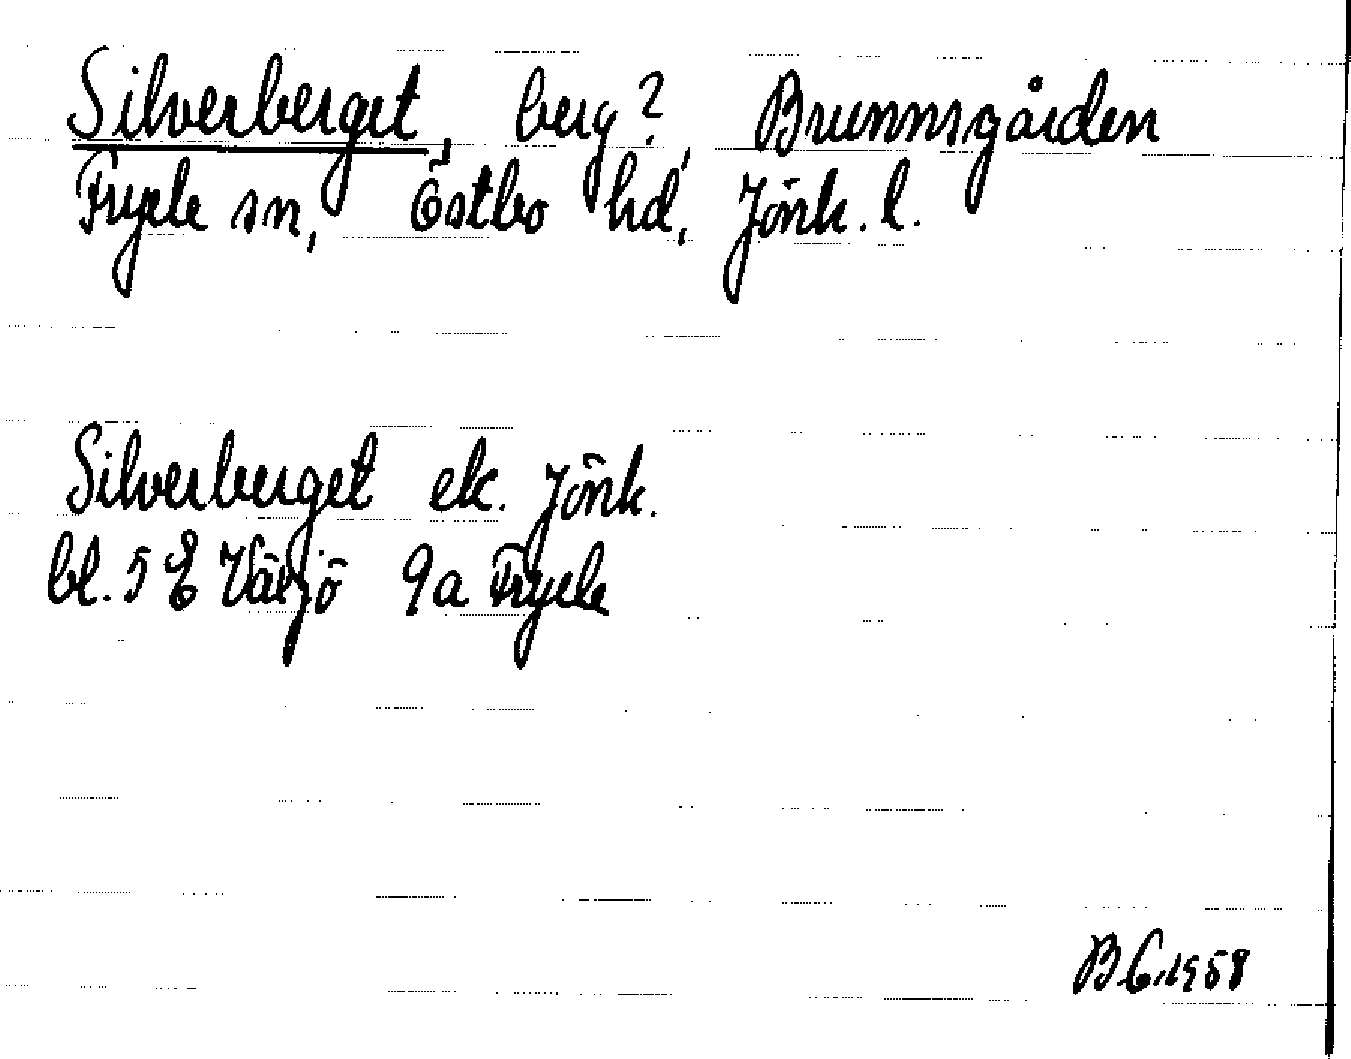 Silverberget, berg? Brunnsgården
Fryele sn, Östbo hd, Jönk. l.
Silverberget ek. Jönk.
bl. 5 E Växjö 9a Fryele
BG.1958